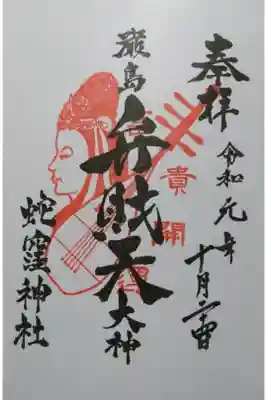 奉拝
令和元年
十月二日
厳島
弁財天
大神
蛇窪神社
貴
開